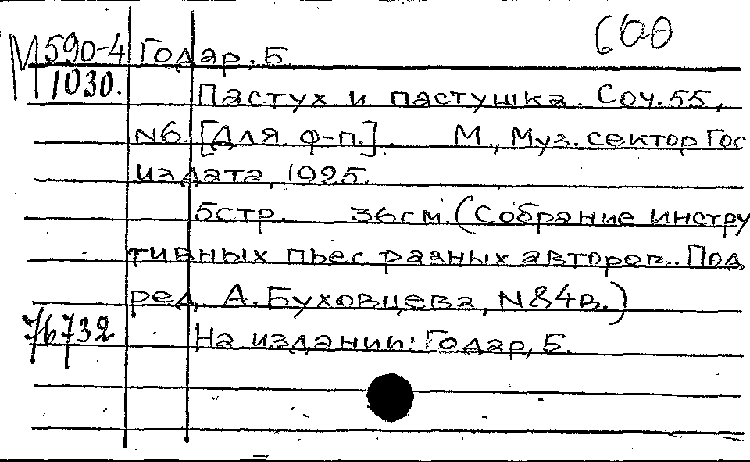 600
М 590-4 Годар, Б.
1030.
Пастух и пастушка. Соч. 55,
N6 [Для ф-п.]. М., Муз. сектор Гос
издата, 1925.
5стр. 36см. (Собрание инстру
тивных пьес разных авторов. Под
ред. А. Буховцева, N84в.)
76732
На издании: Годар, Б.